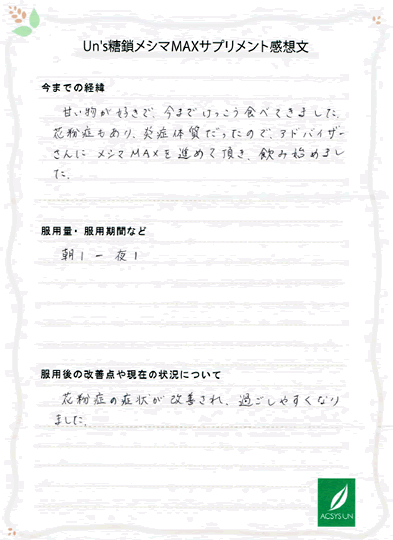 Un's糖鎖メシマMAXサプリメント感想文
今までの経緯
甘い物が好きで、今までけっこう食べてきました。
花粉症もあり、炎症体質だったので、アドバイザー
さんに メシマMAXを進めて頂き、飲み始めまし
た。
服用量・服用期間など
朝1 ー 夜1
服用後の改善点や現在の状況について
花粉症の症状が改善され、過ごしやすくなり
ました。
ACSYSUN